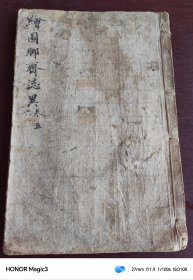 繪圖聊齋誌異卷五
六
HONOR Magic3
27mm f/1.9 1/100s ISO100